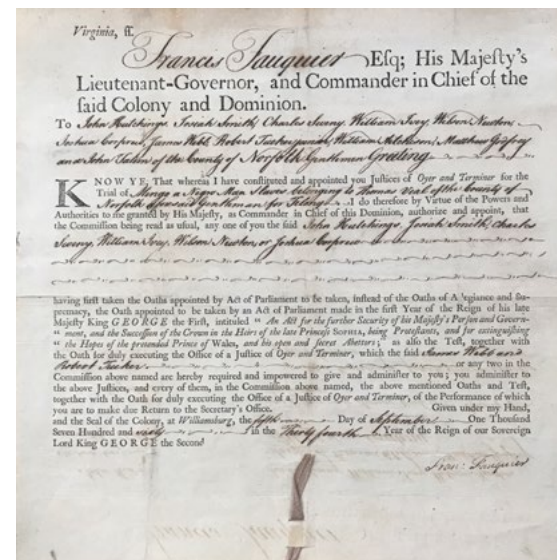 Virginia, ſſ.
Francis Fauquier Eſq; His Majeſty's
Lieutenant-Governor, and Commander in Chief of the
ſaid Colony and Dominion.
To John Hutchings, Josiah Smith, Charles Sweny, William Ivey, Wilson Newton,
Joshua Corprew, James Webb, Robert Tucker junior, William Aitchison, Matthew Godfrey
and John of the County of Norfolk Gentlemen Greeting.
KNOW YE, That whereas I have conſtituted and appointed you Juſtices of Oyer and Terminer for the
Trial of Mingo a Negro Man Slave belonging to Thomas Veal of the County of
Norfolk aforesaid Gentleman for Felony I do therefore by Virtue of the Powers and
Authorities to me granted by His Majeſty, as Commander in Chief of this Dominion, authorize and appoint, that
the Commiſſion being read as uſual, any one of you the ſaid John Hutchings, Josiah Smith, Charles
Sweny, William Ivey, Wilson Newton, or Joshua Corprew
having firſt taken the Oaths appointed by Act of Parliament to be taken, inſtead of the Oaths of Allegiance and Su-
premacy, the Oath appointed to be taken by an Act of Parliament made in the firſt Year of the Reign of his late
Majeſty King GEORGE the Firſt, intitled " An Act for the further Security of his Majeſty's Perſon and Govern-
" ment, and the Succeſſion of the Crown in the Heirs of the late Princeſs SOPHIA, being Proteſtants, and for extinguiſhing
" the Hopes of the pretended Prince of Wales, and his open and ſecret Abettors; as alſo the Teſt, together with
the Oath for duly executing the Office of a Juſtice of Oyer and Terminer, which the ſaid James Webb and
Robert Tucker or any two in the
Commiſſion above named are hereby required and impowered to give and adminiſter to you; you adminiſter to
the above Juſtices, and every of them, in the Commiſſion above named, the above mentioned Oaths and Teſt,
together with the Oath for duly executing the Office of a Juſtice of Oyer and Terminer, of the Performance of which
you are to make due Return to the Secretary's Office. Given under my Hand,
and the Seal of the Colony, at Williamsburg, the fifth Day of September One Thouſand
Seven Hundred and sixty in the Thirty fourth Year of the Reign of our Sovereign
Lord King GEORGE the Second
Fran: Fauquier